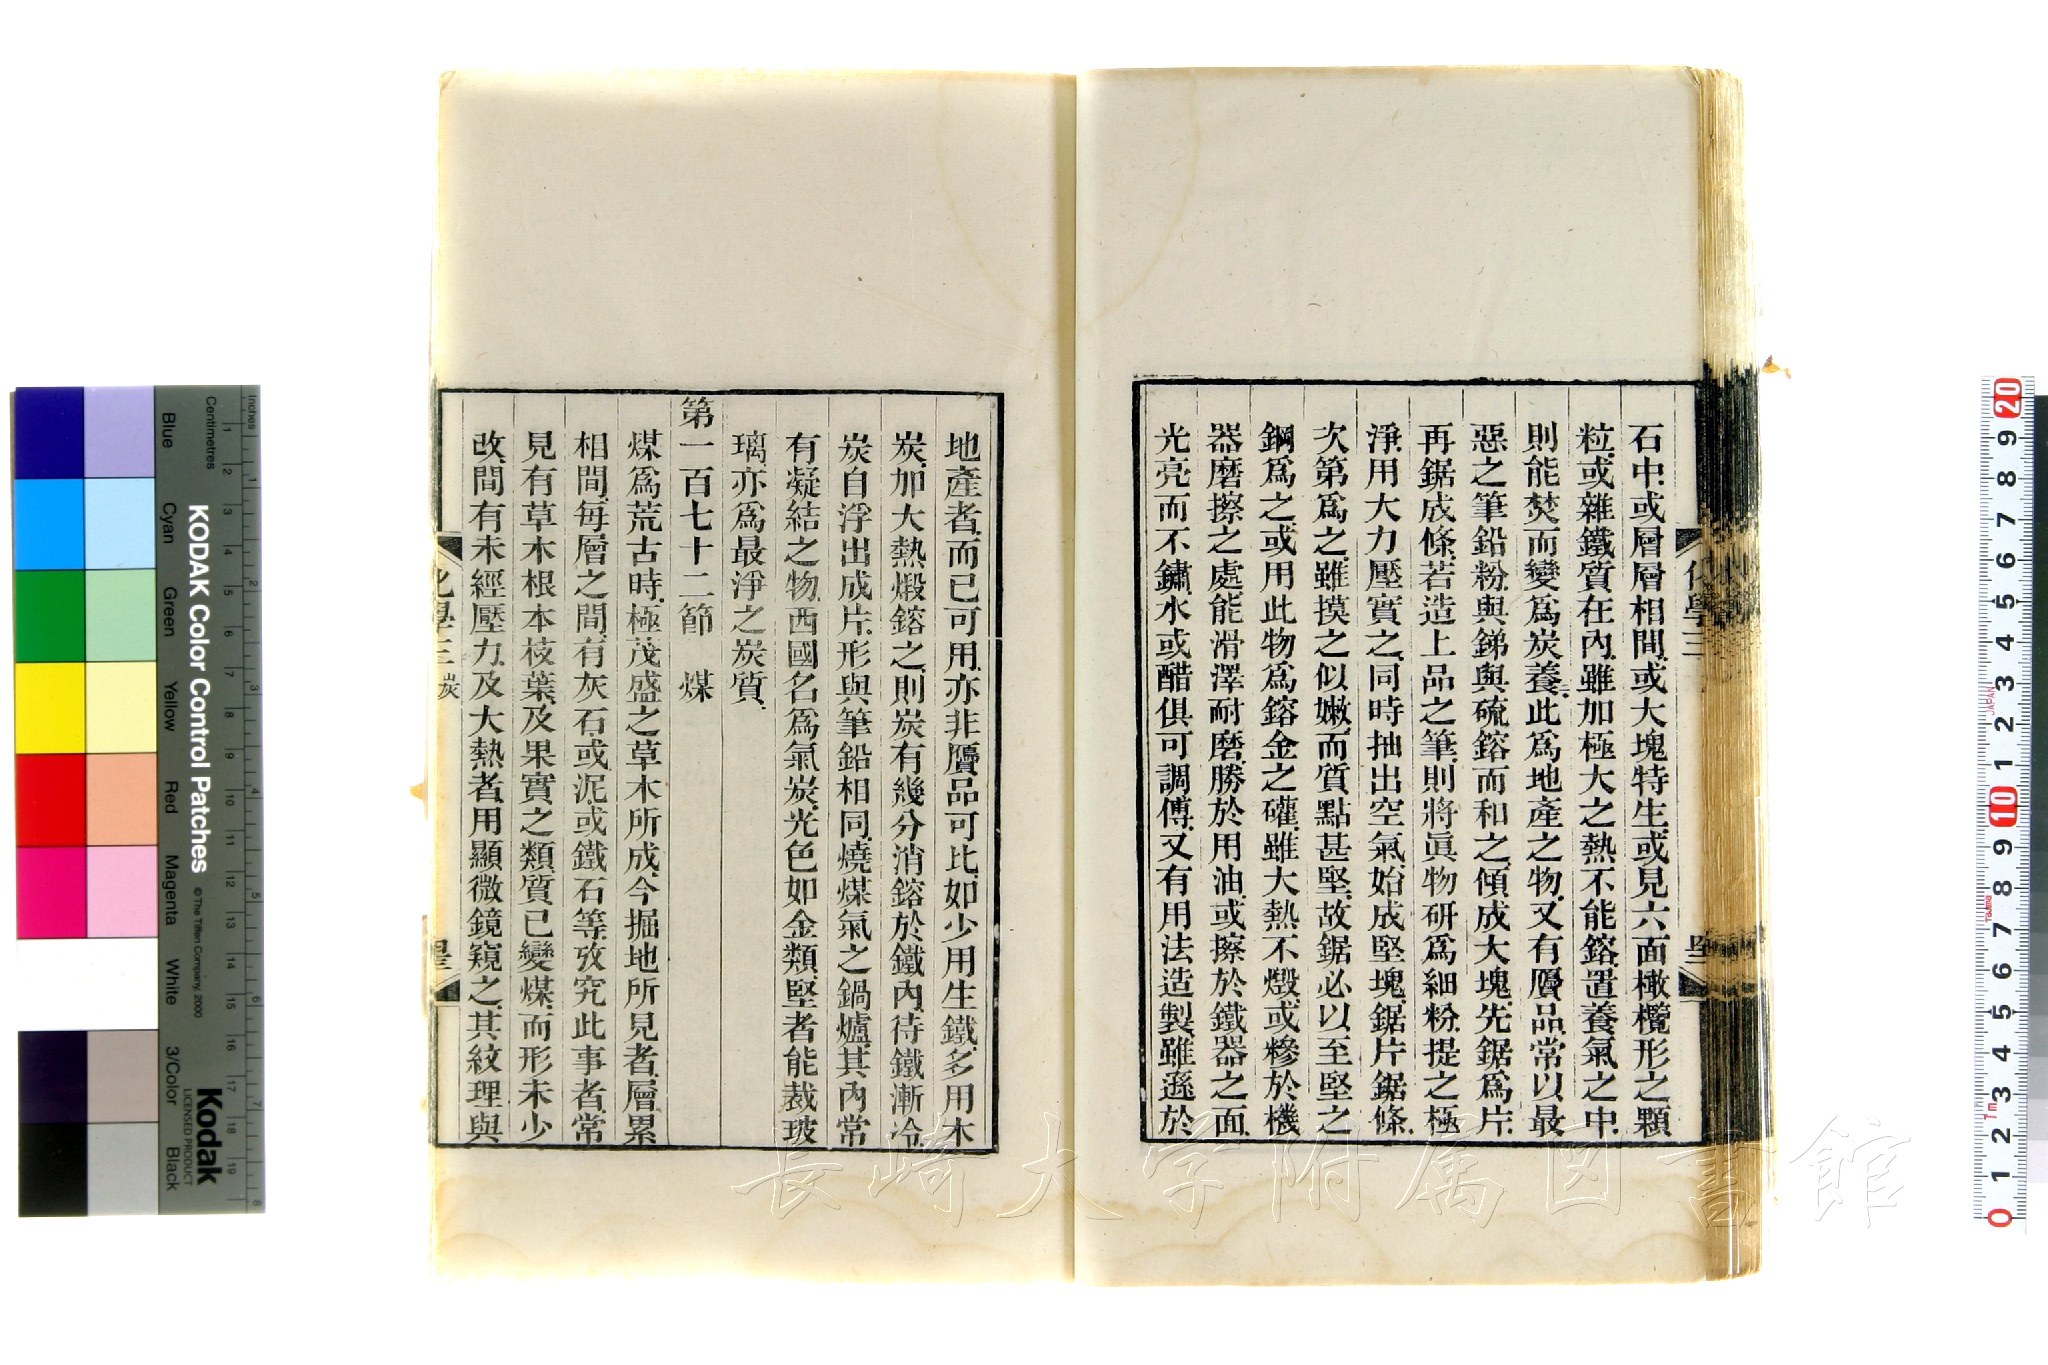 石中或層層相間或大塊特生或見六面橄欖形之顆
粒或雜鐵質在內雖加極大之熱不能鎔置養氣之中
則能焚而變爲炭養二此爲地產之物又有贋品常以最
惡之筆鉛粉與銻與硫鎔而和之傾成大塊先鋸爲片
再鋸成條若造上品之筆則將眞物研爲細粉提之極
淨用大力壓實之同時抽出空氣始成堅塊鋸片鋸條
次第爲之雖摸之似嫩而質點甚堅故鋸必以至堅之
鋼爲之或用此物爲鎔金之礶雖大熱不燬或糝於機
器磨擦之處能滑澤耐磨勝於用油或擦於鐵器之面
光亮而不鏽水或醋俱可調傅又有用法造製雖遜於
化學三
地產者而已可用亦非贋品可比如少用生鐵多用木
炭加大熱煅鎔之則炭有幾分消鎔於鐵內待鐵漸冷
炭自浮出成片形與筆鉛相同燒煤氣之鍋爐其內常
有凝結之物西國名爲氣炭光色如金類堅者能裁玻
璃亦爲最淨之炭質
第一百七十二節 煤
煤爲荒古時極茂盛之草木所成今掘地所見者層累
相間每層之間有灰石或泥或鐵石等攷究此事者常
見有草木根本枝葉及果實之類質已變煤而形未少
改間有未經壓力及大熱者用顯微鏡窺之其紋理與
化學三 炭
長崎大学附属図書館
KODAK Color Control Patches
© The Tiffen Company, 2000
Kodak
LICENSED PRODUCT
Inches
Centimetres
Blue Cyan Green Yellow Red Magenta White 3/Color Black
1 2 3 4 5 6 7 8 9 10 11 12 13 14 15 16 17 18 19
1 2 3 4 5 6 7 8
20 9 8 7 6 5 4 3 2 1 10 9 8 7 6 5 4 3 2 1 0
JAPAN